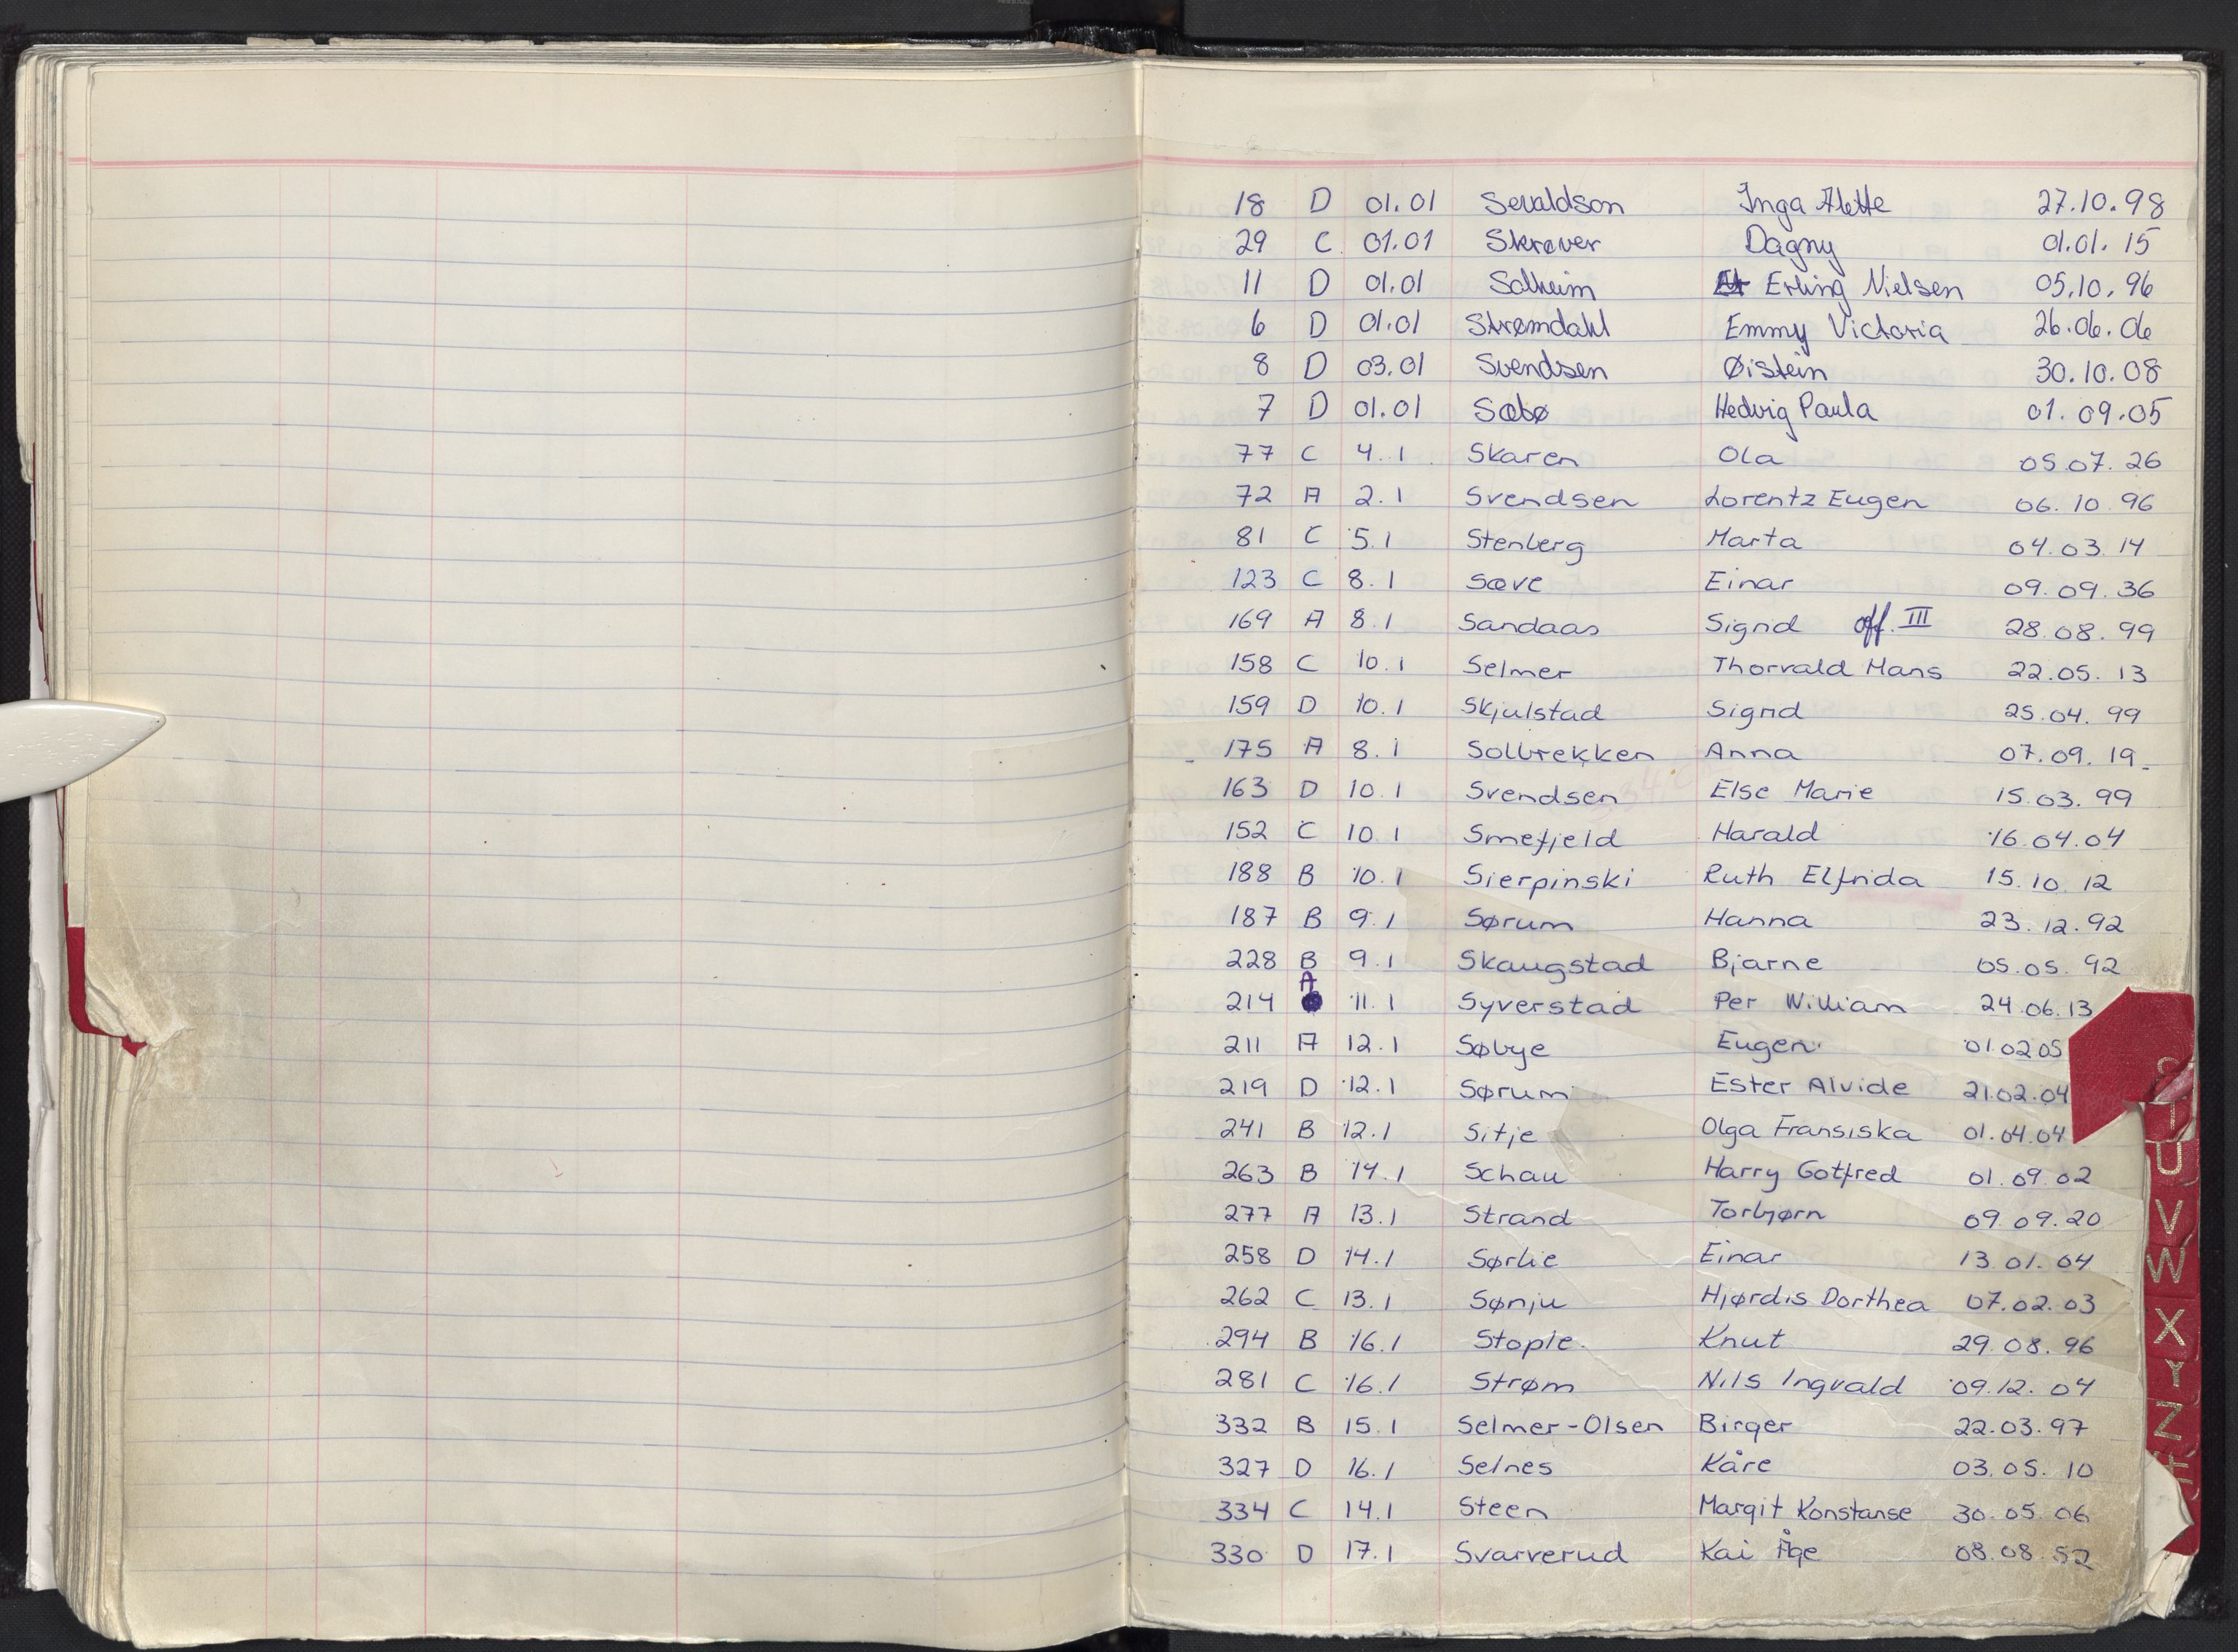 18 D 01.01 Sevaldson Inga Alette 27.10.98
29 C. 01.01 Skrøver Dagny 01.01.15
11 D 01.01 Solheim Erling Nielsen 05.10.96
6 D 01.01 Strømdahl Emmy Victoria 26.06.06
8 D 03.01 Svendsen Øistein 30.10.08
7 D 01.01 Sæbø Hedvig Paula 01.09.05
77 C 4.1 Skaren Ola 05.07.26
72 A 2.1 Svendsen Lorentz Eugen 06.10.96
81 C 5.1 Stenberg Marta 04.03.14
123 C 8.1 Sæve Einar 09.09.36
169 A 8.1 Sandaas Sigrid off. III 28.08.99
158 C 10.1 Selmer Thorvald Hans 22.05.13
159 D 10.1 Skjulstad Sigrid 25.04.99
175 A 8.1 Solbrekken Anna 07.09.19
163 D 10.1 Svendsen Else Marie 15.03.99
152 C 10.1 Smefjeld Harald 16.04.04
188 B 10.1 Sierpinski Ruth Elfrida 15.10.12
187 B 9.1 Sørum Hanna 23.12.92
228 B 9.1 Skaugstad Bjarne 05.05.92
214 A 11.1 Syverstad Per William 24.06.13
211 A 12.1 Søbye Eugen 01.02.05
219 D 12.1 Sørum Ester Alvide 21.02.04
241 B 12.1 Sitje Olga Fransiska 01.04.04
263 B 14.1 Schau Harry Gotfred 01.09.02
277 A 13.1 Strand Torbjørn 09.09.20
258 D 14.1 Sørlie Einar 13.01.04
262 C 13.1 Sønju Hjørdis Dorthea 07.02.03
294 B 16.1 Stople Knut 29.08.96
281 C 16.1 Strøm Nils Ingvald 09.12.04
332 B 15.1 Selmer-Olsen Birger 22.03.97
327 D 16.1 Selnes Kåre 03.05.10
334 C 14.1 Steen Margit Konstanse 30.05.06
330 D 17.1 Svarverud Kai Åge 08.08.52
T
U
V
W
X
Y
Z